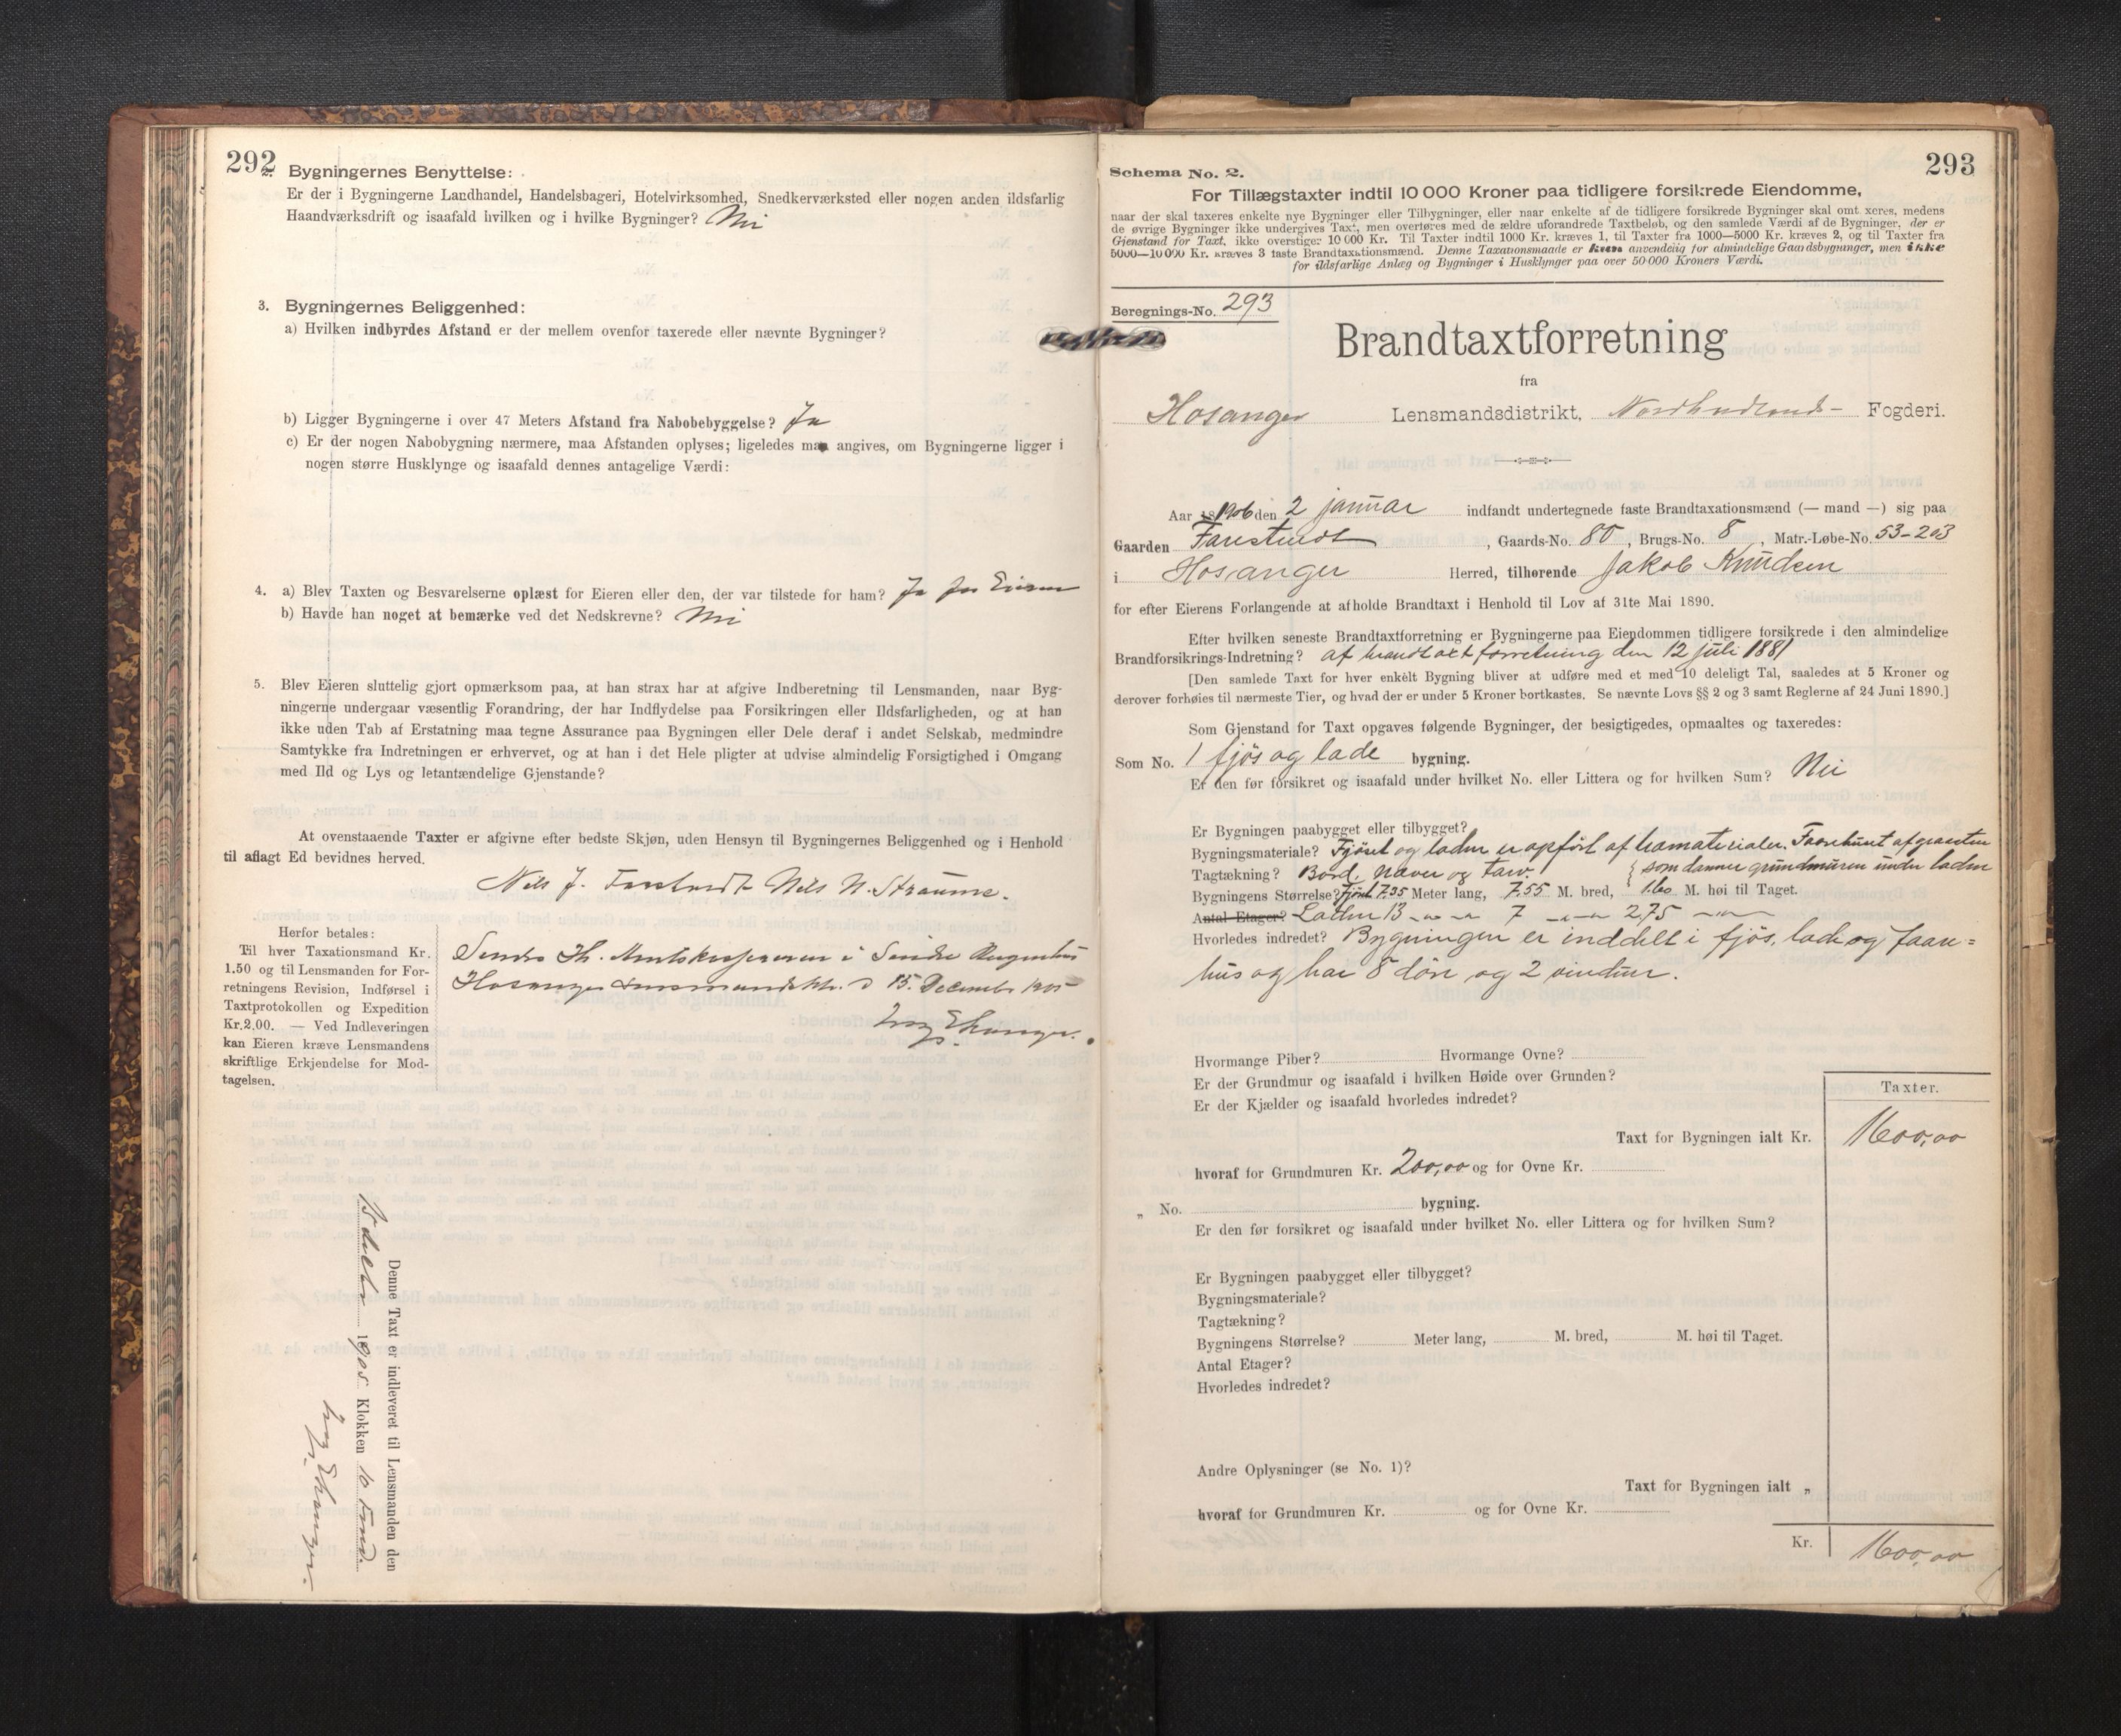 292
2. Bygningernes Benyttelse:
Er der i Bygningerne Landhandel, Handelsbageri, Hotelvirksomhed, Snedkerværksted eller nogen anden ildsfarlig
Haandværksdrift og isaafald hvilken og i hvilke Bygninger? Nei
3. Bygningernes Beliggenhed:
a) Hvilken indbyrdes Afstand er der mellem ovenfor taxerede eller nævnte Bygninger?
b) Ligger Bygningerne i over 47 Meters Afstand fra Nabobebyggelse? Ja
c) Er der nogen Nabobygning nærmere, maa Afstanden oplyses; ligeledes maa angives, om Bygningerne ligger i
nogen større Husklynge og isaafald dennes antagelige Værdi:
4. a) Blev Taxten og Besvarelserne oplæst for Eieren eller den, der var tilstede for ham? Ja for Eieren
b) Havde han noget at bemærke ved det Nedskrevne? Nei
5. Blev Eieren sluttelig gjort opmærksom paa, at han strax har at afgive Indberetning til Lensmanden, naar Byg-
ningerne undergaar væsentlig Forandring, der har Indflydelse paa Forsikringen eller Ildsfarligheden, og at han
ikke uden Tab af Erstatning maa tegne Assurance paa Bygningen eller Dele deraf i andet Selskab, medmindre
Samtykke fra Indretningen er erhvervet, og at han i det Hele pligter at udvise almindelig Forsigtighed i Omgang
med Ild og Lys og letantændelige Gjenstande?
At ovenstaaende Taxter er afgivne efter bedste Skjøn, uden Hensyn til Bygningernes Beliggenhed og i Henhold
til aflagt Ed bevidnes herved.
Nils J. Farstvedt Nils N. Straume.
Herfor betales:
Til hver Taxationsmand Kr.
1.50 og til Lensmanden for For-
retningens Revision, Indførsel i
Taxtprotokollen og Expedition
Kr.2.00. — Ved Indleveringen
kan Eieren kræve Lensmandens
skriftlige Erkjendelse for Mod-
tagelsen.
Sendes Hr. Amtskassereren i Søndre Bergenhus
Hosanger d 15. December 1905
Denne Taxt er indleveret til Lensmanden den
1905 Klokken 10 Form.
293
Schema No. 2.
For Tillægstaxter indtil 10 000 Kroner paa tidligere forsikrede Eiendomme,
naar der skal taxeres enkelte nye Bygninger eller Tilbygninger, eller naar enkelte af de tidligere forsikrede Bygninger skal omt xeres, medens
de øvrige Bygninger ikke undergives Taxt, men overføres med de ældre uforandrede Taxtbeløb, og den samlede Værdi af de Bygninger, der er
Gjenstand for Taxt, ikke overstiger 10 000 Kr. Til Taxter indtil 1000 Kr. kræves 1, til Taxter fra 1000—5000 Kr. kræves 2, og til Taxter fra
5000—10 000 Kr. kræves 3 faste Brandtaxationsmænd. Denne Taxationsmaade er kun anvendelig for almindelige Gaardsbygninger, men ikke
for ildsfarlige Anlæg og Bygninger i Husklynger paa over 50 000 Kroners Værdi.
Beregnings-No. 293
Brandtaxtforretning
fra
Hosanger Lensmandsdistrikt, Nordhordlands- Fogderi.
Aar 1906 den 2 januar indfandt undertegnede faste Brandtaxationsmænd (— mand —) sig paa
Gaarden Farestvedt, Gaards-No. 80, Brugs-No. 8, Matr.-Løbe-No. 53-203
i Hosanger Herred, tilhørende Jakob Knudsen
for efter Eierens Forlangende at afholde Brandtaxt i Henhold til Lov af 31te Mai 1890.
Efter hvilken seneste Brandtaxtforretning er Bygningerne paa Eiendommen tidligere forsikrede i den almindelige
Brandforsikrings-Indretning? af brandtaxtforretning den 12 juli 1881
[Den samlede Taxt for hver enkelt Bygning bliver at udføre med et med 10 deleligt Tal, saaledes at 5 Kroner og
derover forhøies til nærmeste Tier, og hvad der er under 5 Kroner bortkastes. Se nævnte Lovs §§ 2 og 3 samt Reglerne af 24 Juni 1890.]
Som Gjenstand for Taxt opgaves følgende Bygninger, der besigtigedes, opmaaltes og taxeredes:
Som No. 1 fjøs og lade bygning.
Er den før forsikret og isaafald under hvilket No. eller Littera og for hvilken Sum? Nei
Er Bygningen paabygget eller tilbygget?
Bygningsmateriale? Fjøset og laden er opført af tramaterialer. Faarehuset af graasten
Tagtækning? Bord, næver og tarv. { som danner grundmuren under laden
Bygningens Størrelse? Fjøset 7.35 Meter lang, 7.55 M. bred, 1.60 M. høi til Taget.
Antal Etager? Laden 13 -„- -„- 7 -„- -„- 2,75 -„-
Hvorledes indredet? Bygningen er inddelt i fjøs, lade og faare=
hus og har 8 døre og 2 vinduer.
Hvormange Piber? Hvormange Ovne?
Er der Grundmur og isaafald i hvilken Høide over Grunden?
Er der Kjælder og isaafald hvorledes indredet?
Taxter.
Taxt for Bygningen ialt Kr. 1600,00
hvoraf for Grundmuren Kr. 200,00 og for Ovne Kr.
„ No. bygning.
Er den før forsikret og isaafald under hvilket No. eller Littera og for hvilken Sum?
Er Bygningen paabygget eller tilbygget?
Bygningsmateriale?
Tagtækning?
Bygningens Størrelse? Meter lang, M. bred, M. høi til Taget.
Antal Etager?
Hvorledes indredet?
Andre Oplysninger (se No. 1)?
Taxt for Bygningen ialt „
hvoraf for Grundmuren Kr. og for Ovne Kr.
Kr. 1600,00